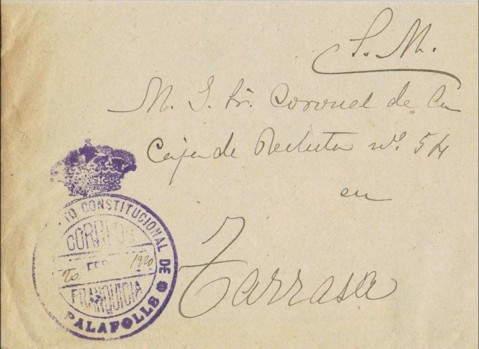 S. M.
M. I. Sr. Coronel de la
Caja de Recluta nº 54
en
Tarrasa
TO CONSTITUCIONAL DE
CORREOS
FEB 1900
FRANQUICIA
PALAFOLLS